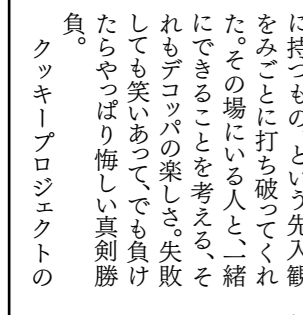 に持つもの、という先入観
をみごとに打ち破ってくれ
た。その場にいる人と、一緒
にできることを考える、そ
れもデコッパの楽しさ。失敗
しても笑いあって、でも負け
たらやっぱり悔しい真剣勝
負。
クッキープロジェクトの